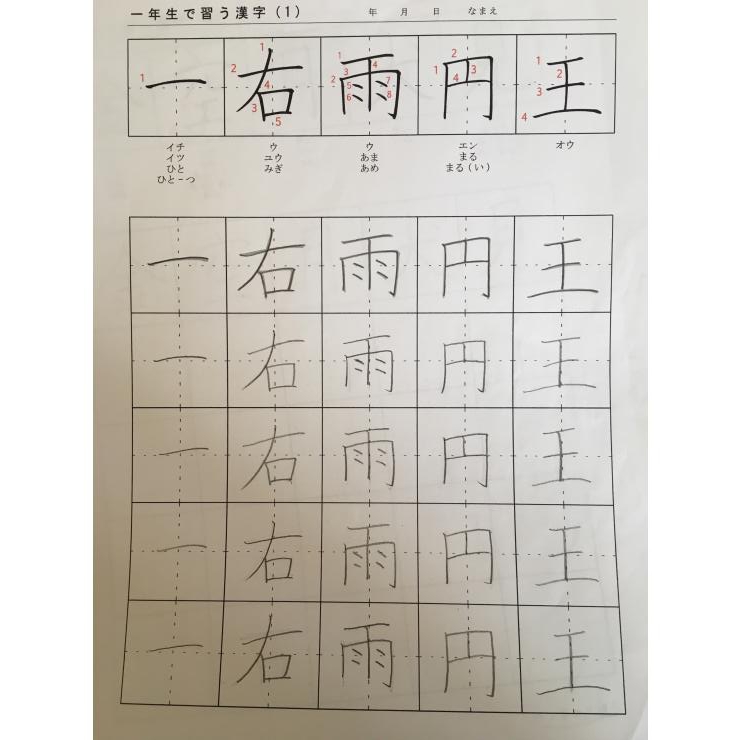 一年生で習う漢字(1) 年 月 日 なまえ
一 右 雨 円 王
1
1 2 3 4 5
1 2 3 4 5 6 7 8
1 2 3 4
1 2 3 4
イチ
イツ
ひと
ひと-つ
ウ
ユウ
みぎ
ウ
あま
あめ
エン
まる
まる(い)
オウ
一 右 雨 円 王
一 右 雨 円 王
一 右 雨 円 王
一 右 雨 円 王
一 右 雨 円 王